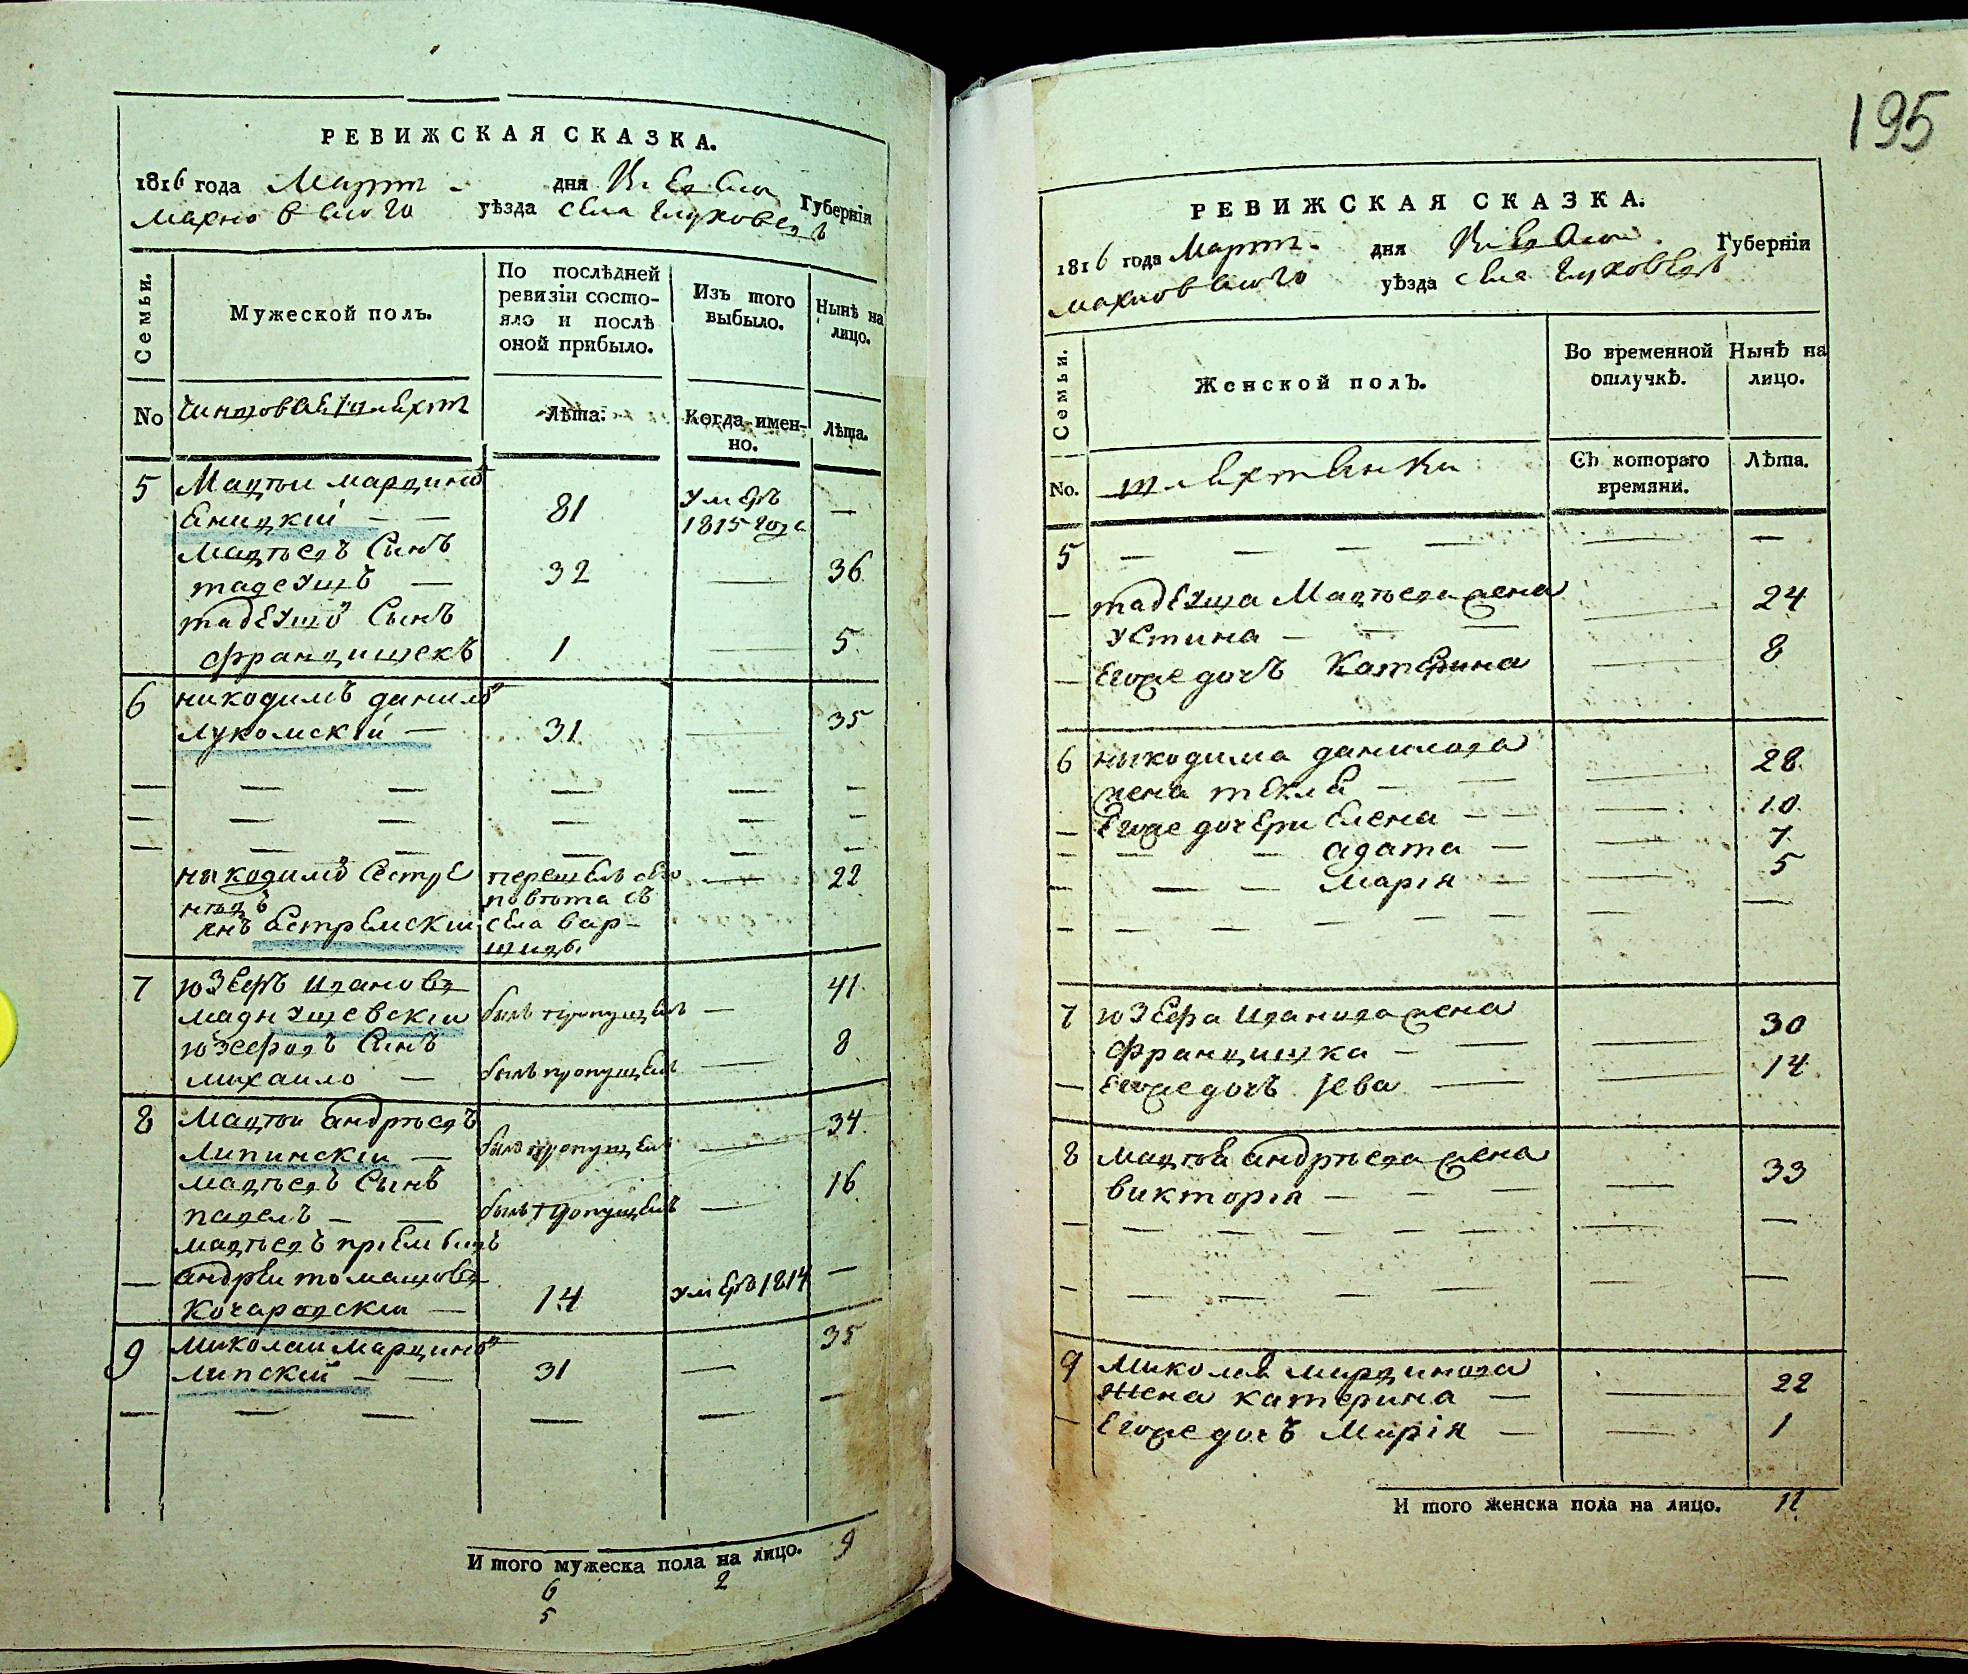 195
РЕВИЖСКАЯ СКАЗКА.
1816 года Март дня Киевской Губерніи
махновского уѣзда села Глуховецъ
Семьи.
Мужеской полъ.
По послѣдней ревизіи состояло и послѣ оной прибыло.
Изъ того выбыло.
Нынѣ на лицо.
No
Лѣта.
Когда имен-
но.
Лѣта.
5 Мацѣй марцинов
81 умеръ —
1815 года
Мацѣевъ Сынъ
тадеушъ — 32 — 36
тадеушов Сынъ
францишекъ 1 — 5
6 никодимъ данилов
лукомскій — 31 — 35
никодимов Сестре
нецъ
янъ Естремскій
села вар-
22
7 юзефъ Иванов
был пропущен — 41
юзефовъ Сынъ
михаило — былъ пропущен — 8
8 Мацѣй андрѣевъ
Липинскій — был пропущен — 34
мацѣевъ Сынъ
павелъ — былъ пропущенъ — 16
мацѣевъ пріемышъ
— андрей томашов
Кочаровскій — 14 умеръ 1814 —
9 миколай марцинов
липскій — 31 — 35
И того мужеска пола на лицо. 9
6 2
5
РЕВИЖСКАЯ СКАЗКА.
1816 года Март дня Киевской Губерніи
махновского уѣзда села Глуховецъ
Семьи.
Женской полъ.
Во временной отлучкѣ.
Нынѣ на лицо.
No.
шлехтянки
Съ котораго времяни.
Лѣта.
5 — — — — — —
— тадеуша Мацѣева жена
устина — 24
— Егоже дочъ Катерина — 8
6 никодима данилова
жена текля — 28
— Егоже дочери Елена — 10
— агата — 7
— Марія — 5
7 юзефа Иванова жена
францишка — 30
— Егоже дочъ Іева — 14
8 мацѣя андрѣева жена
викторія — 33
9 Миколая марцинова
жена катерина — 22
— Егоже дочъ Марія — 1
И того женска пола на лицо. 11